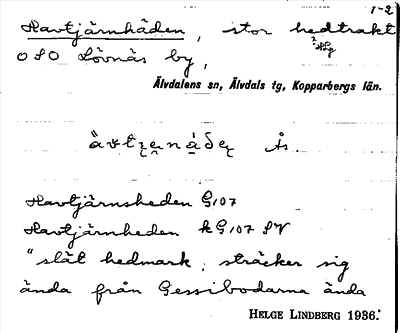 1-2
Havtjärnhäden, stor hedtrakt
O S O Lövnäs by,
Älvdalens sn, Älvdals tg, Kopparbergs län.
Ås
Havtjärnsheden G107
Havtjärnheden kG107 SV
"slät hedmark, sträcker sig
ända från Gessibodarna ända
HELGE LINDBERG 1936.